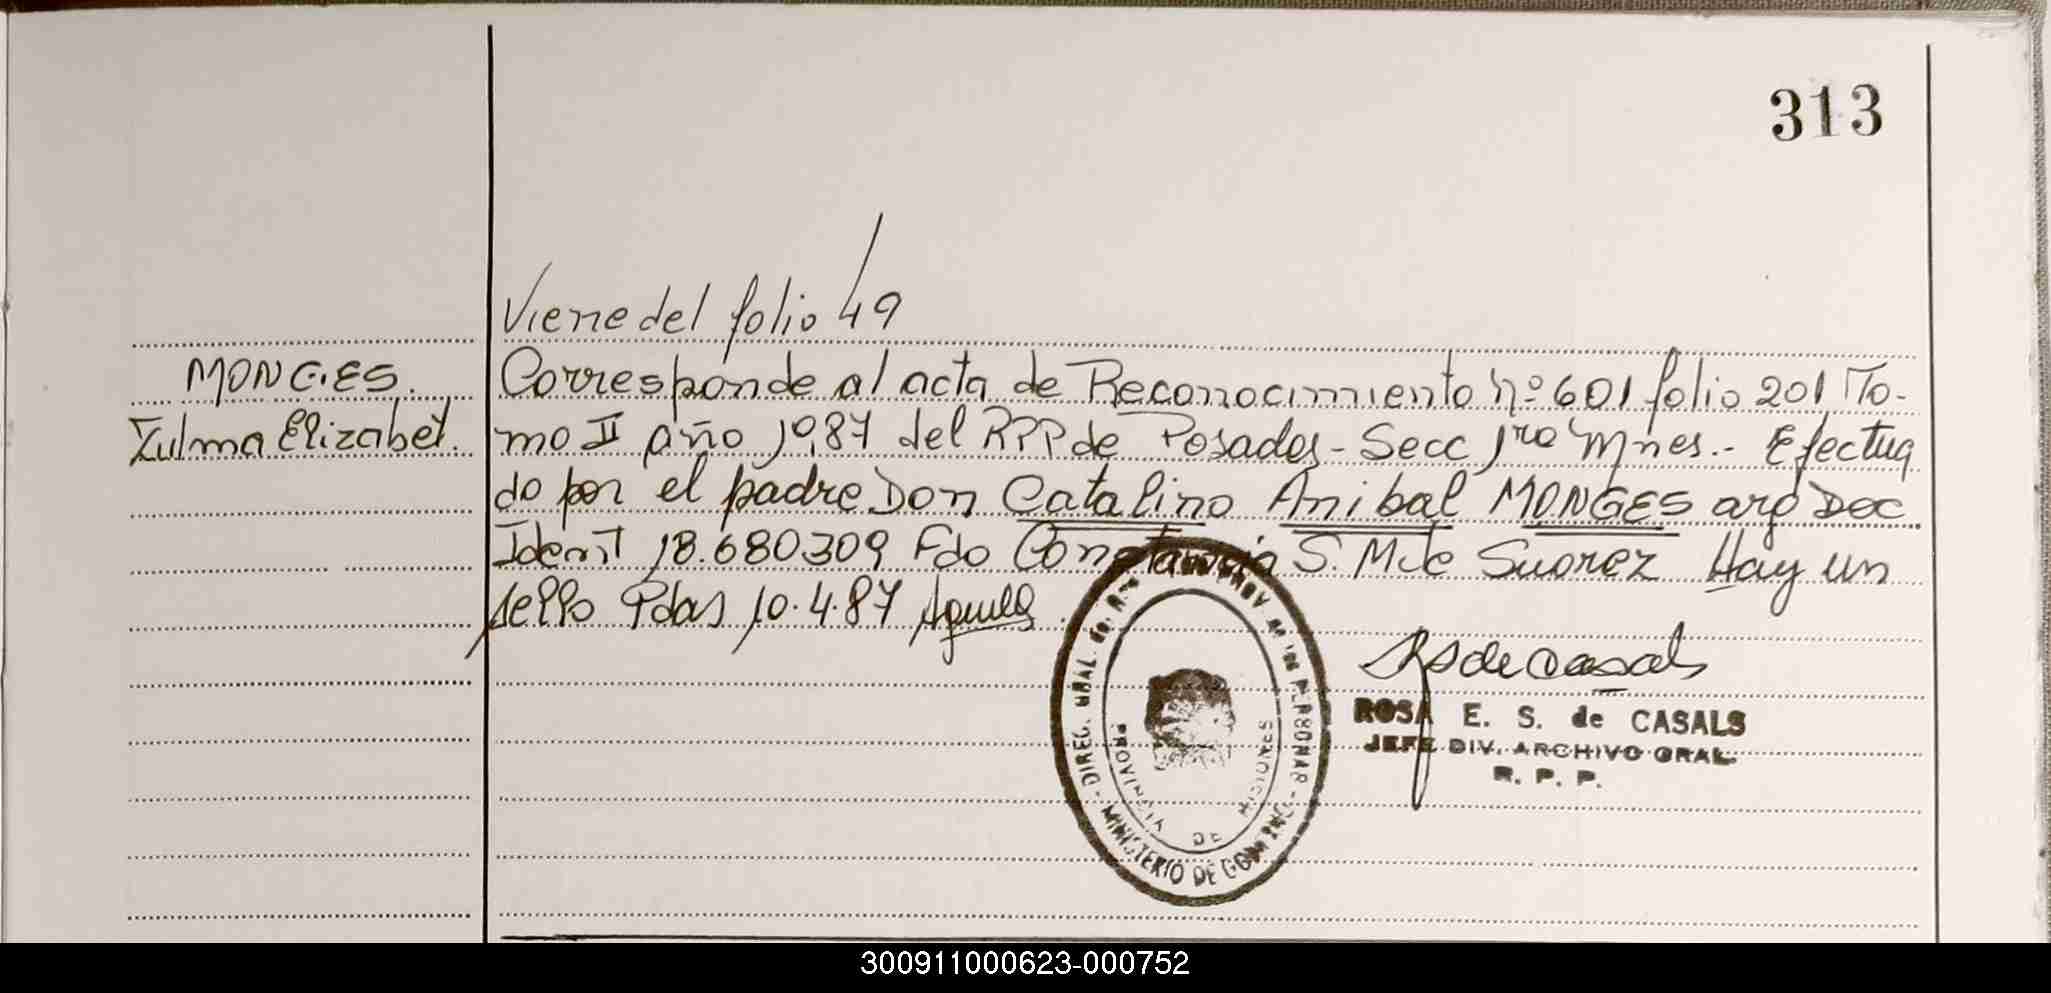 313
Viene del folio 49
MONGES.
Zulma Elizabet.
Corresponde al acta de Reconocimiento nº 601 folio 201 To-
mo II año 1987 del RPP de Posadas - Secc 1ra Mnes.- Efectua
do por el padre Don Catalino Anibal MONGES arg Doc
Ident 18.680.309 Fdo Constancia S. M de Suarez Hay un
sello Pdas 10.4.87
ROSA E. S. de CASALS
JEFE DIV. ARCHIVO GRAL.
R. P. P.
DIREC. GRAL. de PROV. de las PERSONAS
MINISTERIO DE GOBIERNO
PROVINCIA DE MISIONES
300911000623-000752